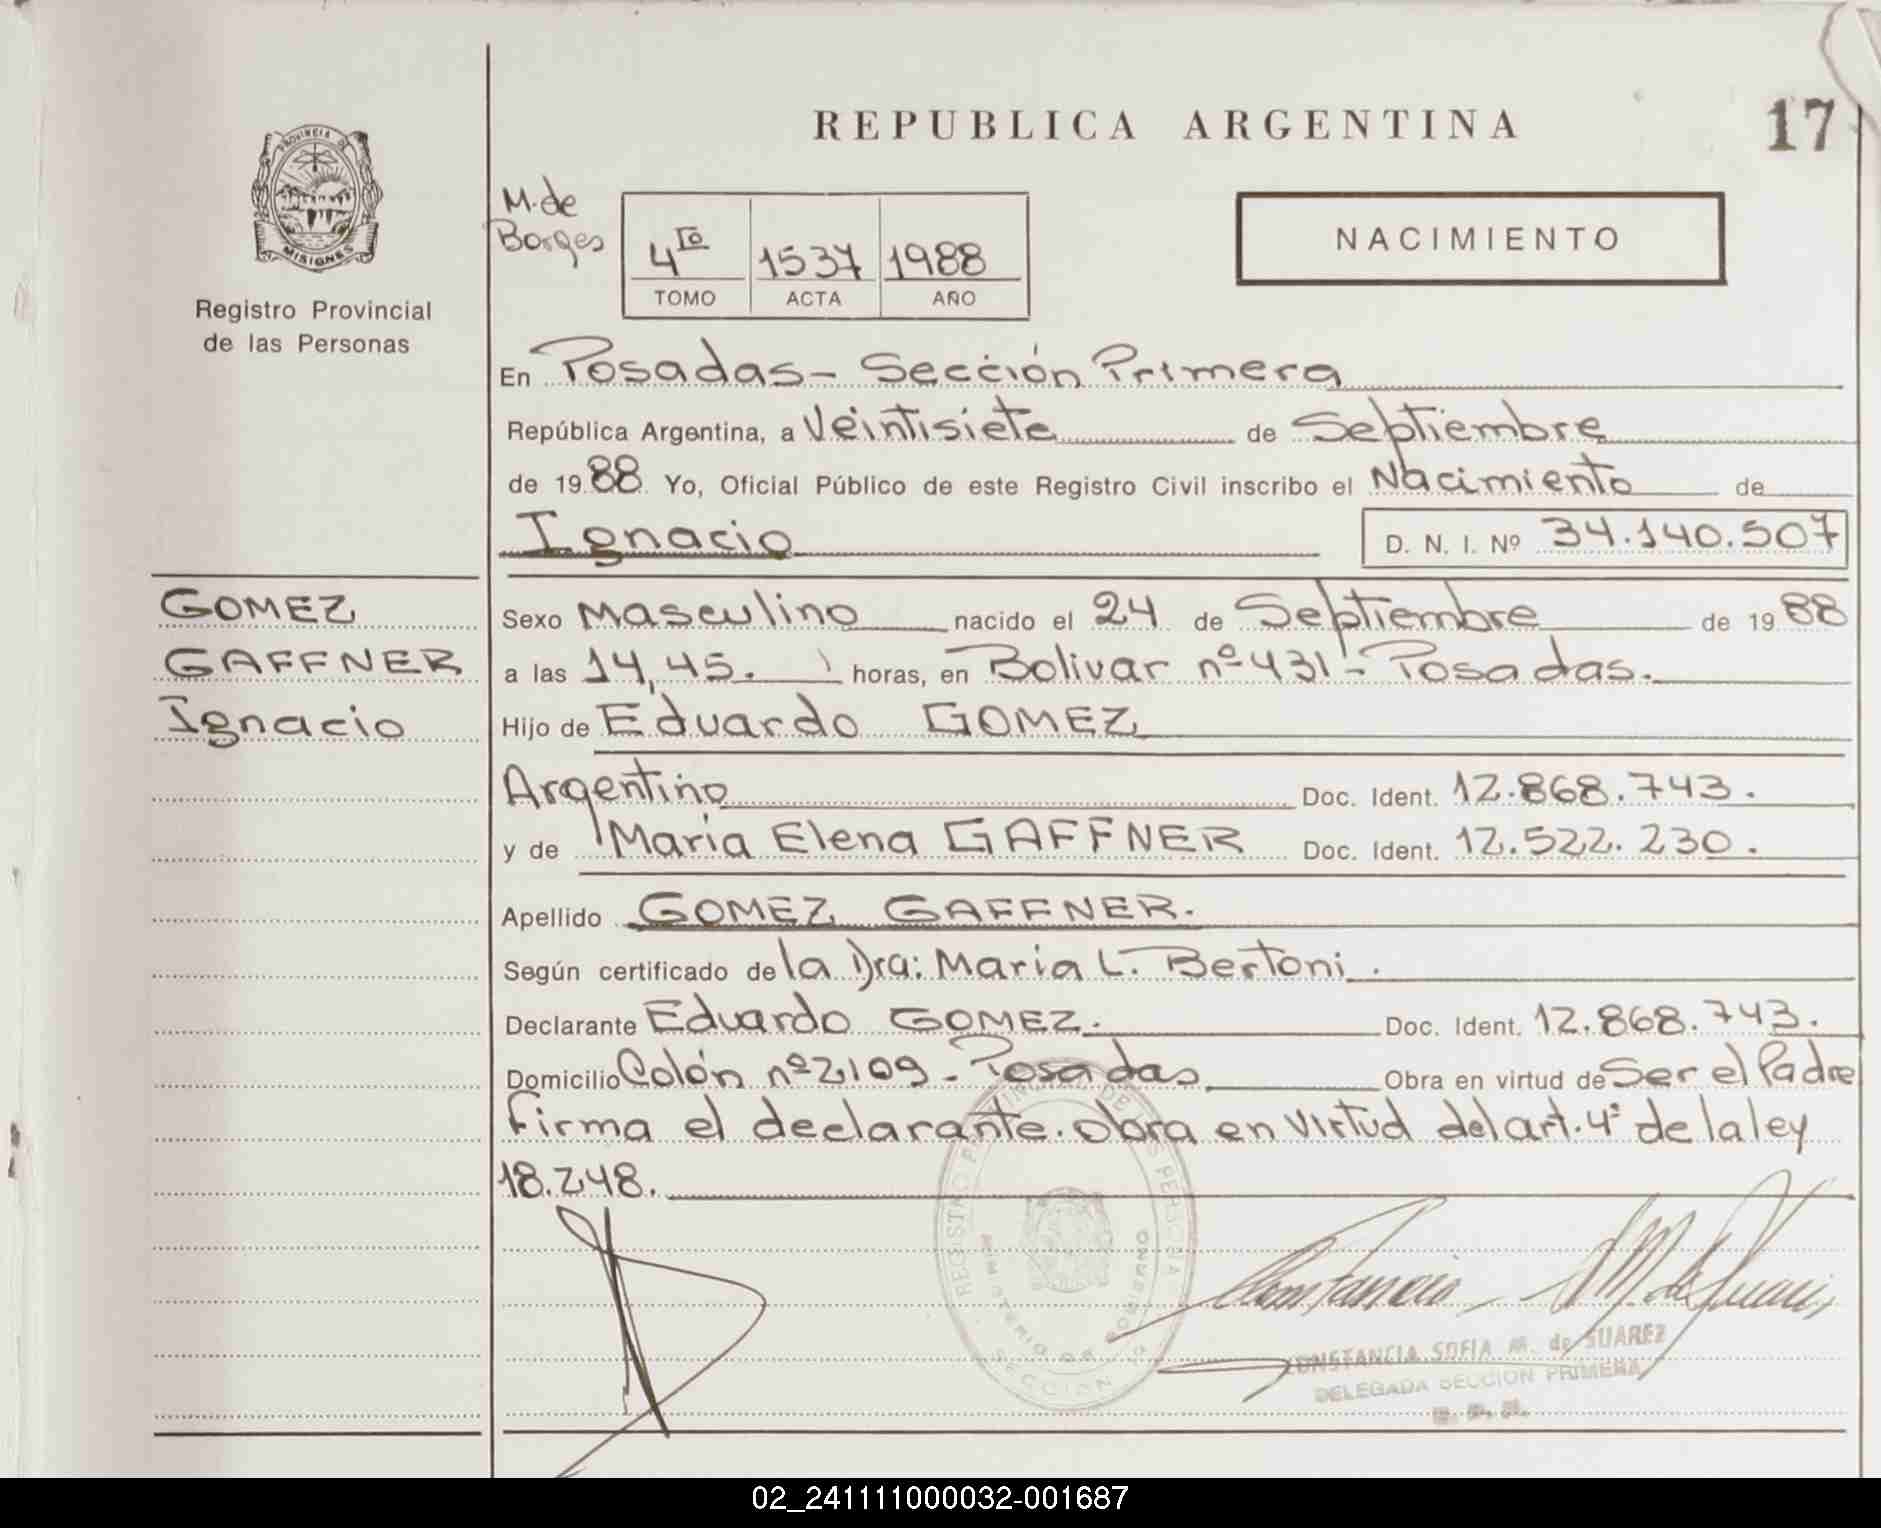 REPUBLICA ARGENTINA
17
PROVINCIA DE
MISIONES
Registro Provincial
de las Personas
M. de
Borges
4to 1537 1988
TOMO ACTA AÑO
NACIMIENTO
En Posadas - Sección Primera
República Argentina, a Veintisiete de Septiembre
de 19 88 Yo, Oficial Público de este Registro Civil inscribo el Nacimiento de
Ignacio D. N. I. Nº 34.140.507
GOMEZ
GAFFNER
Ignacio
Sexo Masculino nacido el 24 de Septiembre de 19 88
a las 14,45. horas, en Bolivar nº 431 - Posadas.
Hijo de Eduardo GOMEZ
Argentino Doc. Ident. 12.868.743.
y de Maria Elena GAFFNER Doc. Ident. 12.522.230.
Apellido GOMEZ GAFFNER.
Según certificado de la Dra: Maria L. Bertoni.
Declarante Eduardo GOMEZ. Doc. Ident. 12.868.743.
Domicilio Colón nº 2109 - Posadas Obra en virtud de Ser el Padre
Firma el declarante. Obra en virtud del art. 4º de la ley
18.248.
REGISTRO PROVINCIAL DE LAS PERSONAS
MINISTERIO DE GOBIERNO
SECCION
Constancia M. de Suarez
CONSTANCIA SOFIA M. de SUAREZ
DELEGADA SECCION PRIMERA
02_241111000032-001687